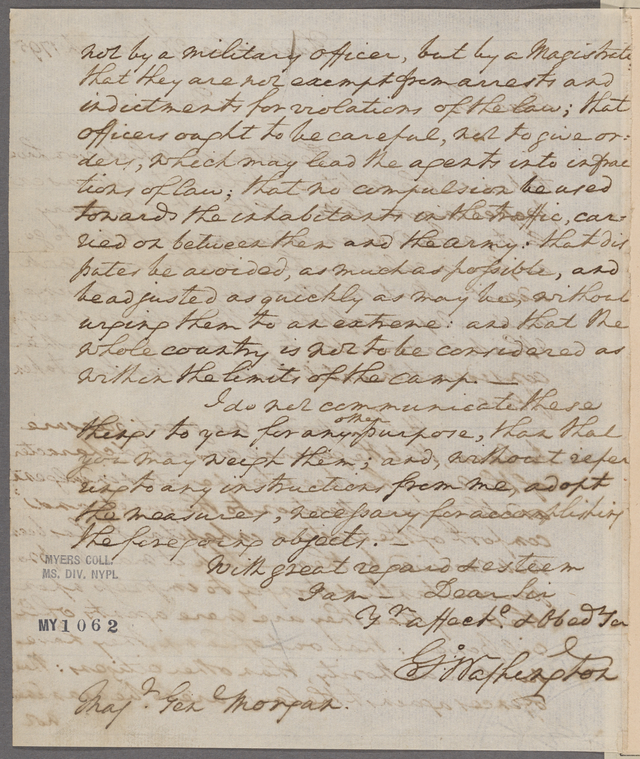 not by a military officer, but by a Magistrate;
that they are not exempt from arrests and
indictments for violations of the law; that
officers ought to be careful, not to give or-
ders, which may lead the agents into infrac
tions of law; that no compulsion be used
towards the inhabitants in the traffic, car-
ried on between them and the army: that dis
putes be avoided, as much as possible, and
be adjusted as quickly as may be, without
urging them to an extreme: and that the
whole country is not to be considered as
within the limits of the camp.—
I do not communicate these
things to you for any other purpose, than that
you may weigh them; and, without refer
ing to any instructions from me, adopt
the measures, necessary for accomplishing
the foregoing objects.—
With great regard & esteem
I am – Dear Sir
Yr. affecte. & Obed Ser
Go. Washington
Majr. Genl. Morgan.
MYERS COLL.
MS. DIV. NYPL
MY1062